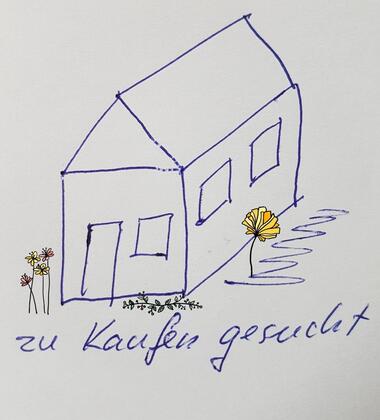 zu Kaufen gesucht